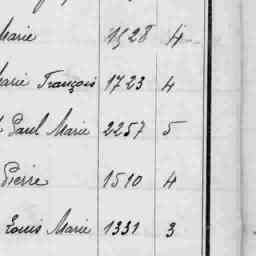 Marie 1928 4
Marie François 1723 4
Paul Marie 2257 5
Pierre 1510 4
Louis Marie 1331 3